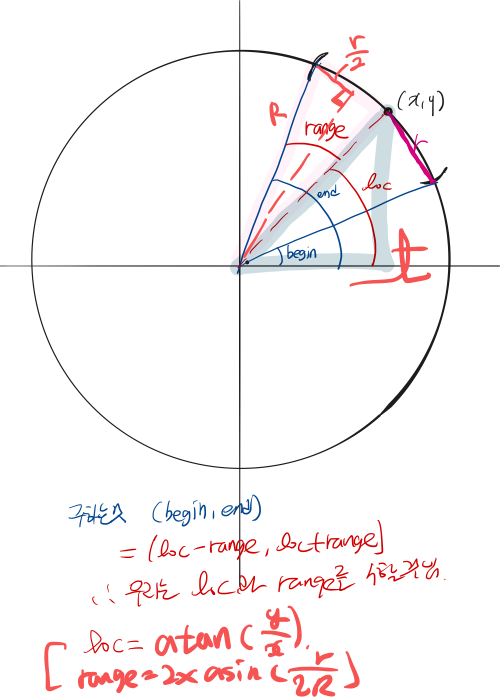 r/2
(x, y)
R
range
r
loc
end
begin
t
구하는것 (begin, end)
= (loc - range, loc + range]
∴ 우리는 loc와 range를 구할것임.
loc = atan(y/x).
range = 2 x asin(r/2R)